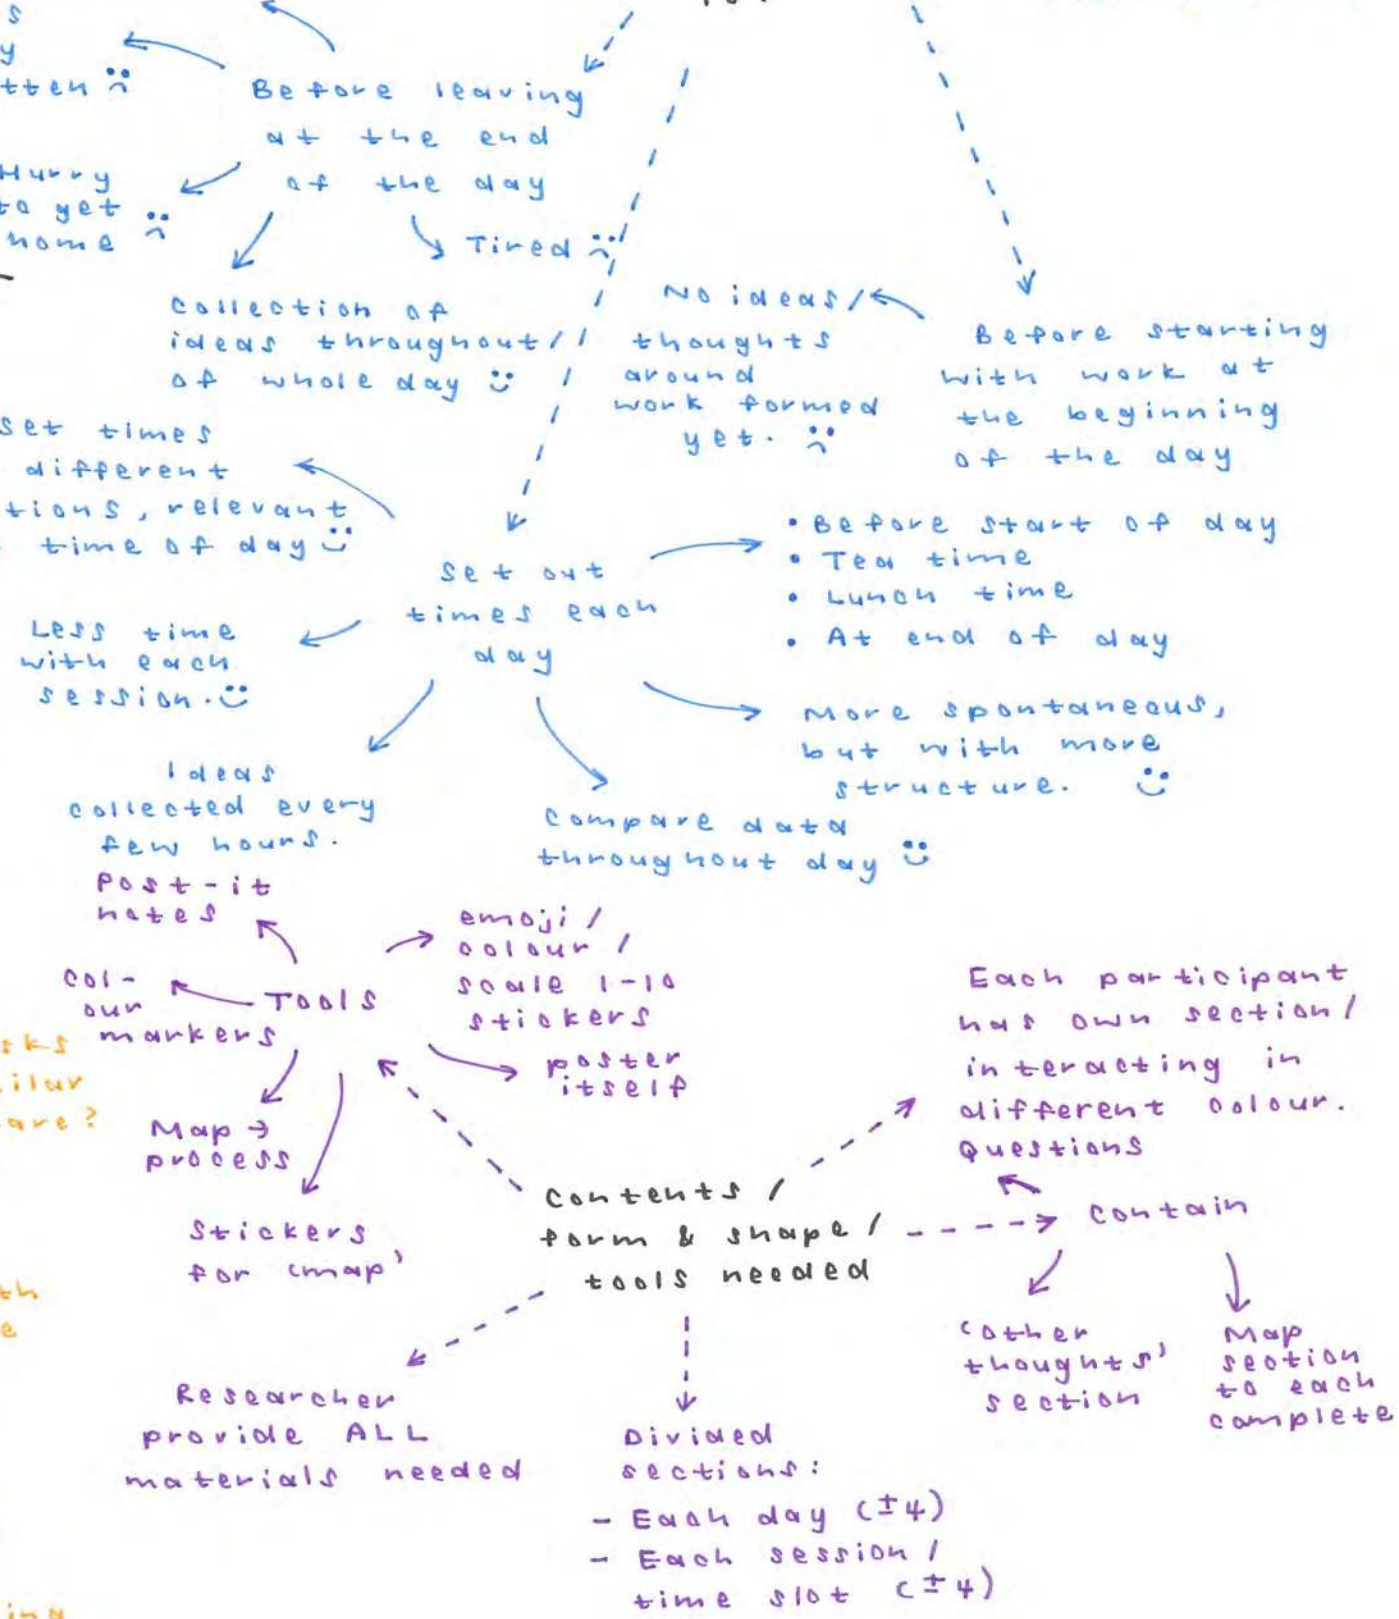 s
y
tten
Before leaving
at the end
of the day
Hurry
to get
home
Tired
Collection of
ideas throughout/
of whole day
No ideas/
thoughts
around
work formed
yet.
Before starting
with work at
the beginning
of the day
set times
different
tions, relevant
time of day
Set out
times each
day
• Before start of day
• Tea time
• Lunch time
• At end of day
Less time
with each
session.
More spontaneous,
but with more
structure.
Ideas
collected every
few hours.
Compare data
throughout day
Post-it
notes
emoji/
colour/
scale 1-10
stickers
col-
our
markers
Tools
poster
itself
Map →
process
Stickers
for 'map'
sks
ilar
are?
Each participant
has own section/
interacting in
different colour.
Questions
Contents /
form & shape /
tools needed
Contain
'Other
thoughts'
section
Map
section
to each
complete
th
e
Researcher
provide ALL
materials needed
Divided
sections:
- Each day (±4)
- Each session /
time slot (±4)
ing